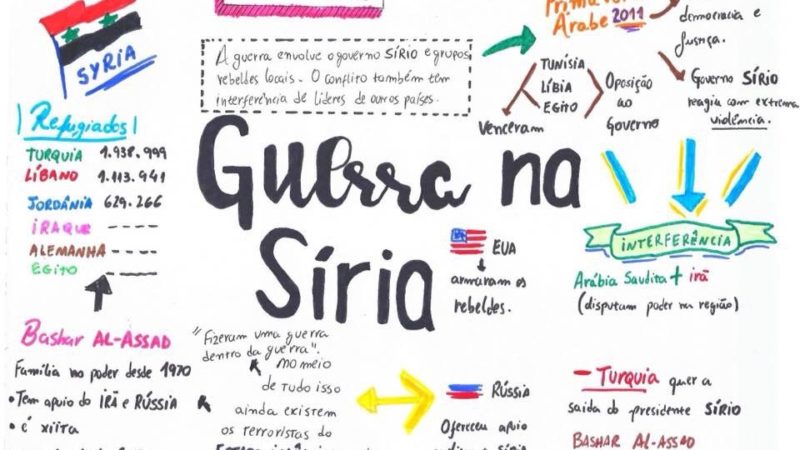 SYRIA
A guerra envolve o governo SÍRIO e grupos
rebeldes locais. O conflito também têm
interferência de líderes de ouros países.
Árabe 2011
democracia e
justiça.
TUNÍSIA
LÍBIA
EGITO
Venceram
Oposição
ao
Governo
Governo SÍRIO
reagia com extrema
violência.
Refugiados
TURQUIA 1.938.999
LÍBANO 1.113.941
JORDÂNIA 629.266
IRAQUE ----
ALEMANHA ----
EGITO ----
Guerra na
Síria
EUA
armaram os
rebeldes.
INTERFERÊNCIA
Arábia Saudita + irã
(disputam poder na região)
Bashar AL-ASSAD
Família no poder desde 1970
• Tem apoio do IRÃ e RÚSSIA
• é xiita
"Fizeram uma guerra
dentro da guerra".
no meio
de tudo isso
ainda existem
os terroristas do
RÚSSIA
Ofereceu apoio
- Turquia quer a
saída do presidente SÍRIO
BASHAR AL-ASSAD